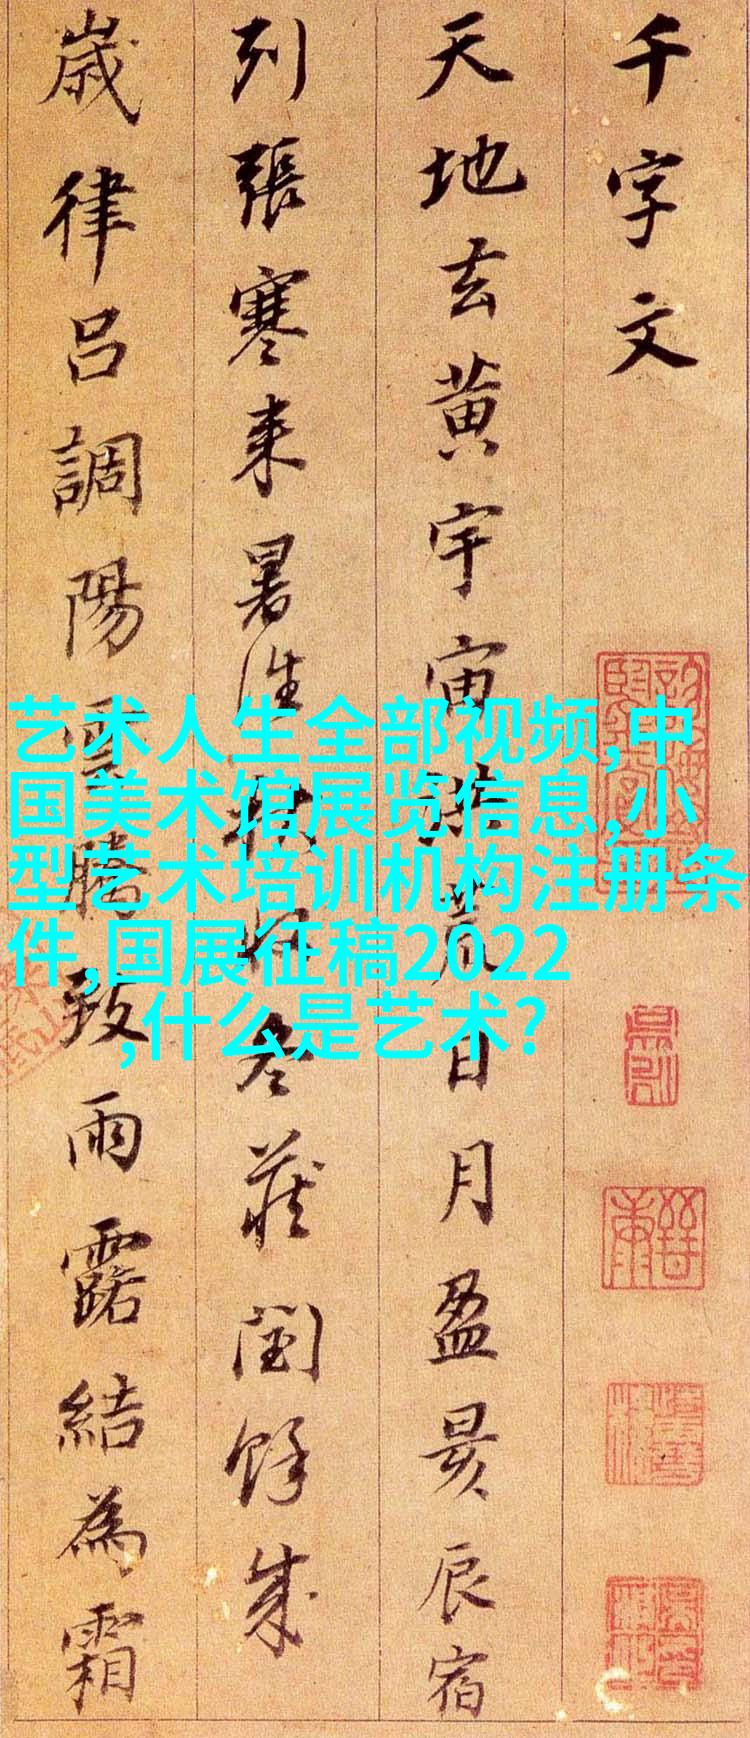 千字文
天地玄黄宇宙洪荒日月盈昃辰宿
列張寒来暑往秋收冬蔵閏餘成
歳律吕調陽雲騰致雨露結為霜
艺术人生全部视频,中
国美术馆展览信息,小
型艺术培训机构注册条
件,国展征稿2022
,什么是艺术?